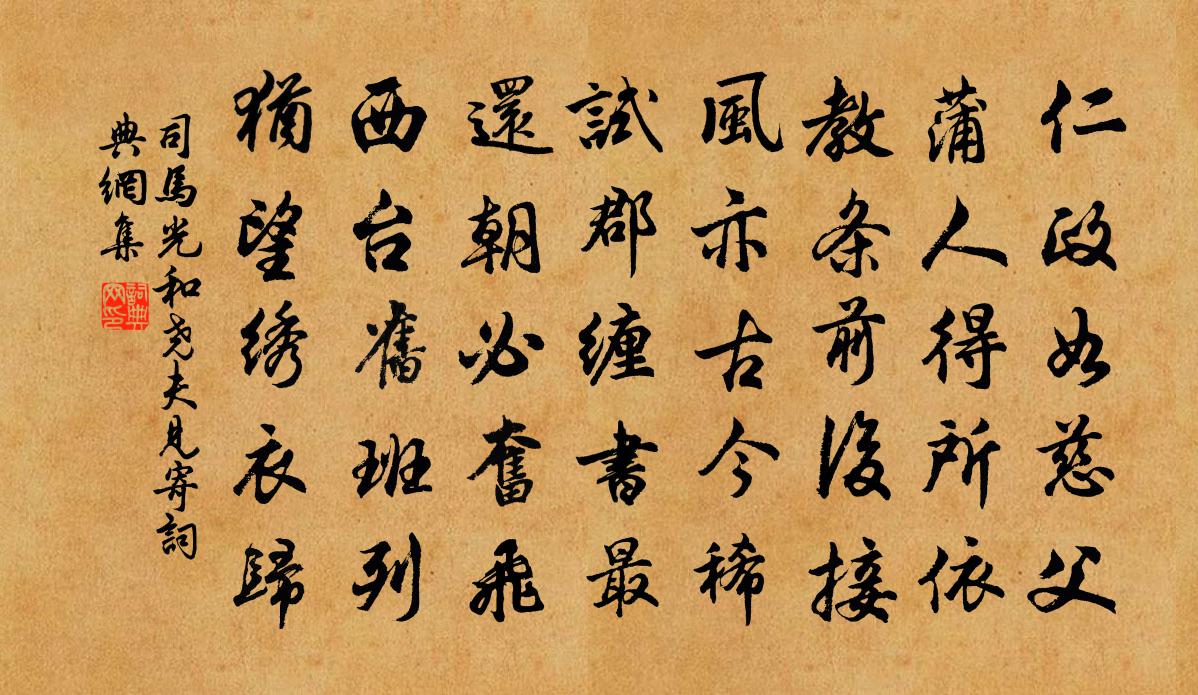 仁政如慈父
蒲人得所依
教条前後接
風亦古今稀
試郡纏書最
還朝必奮飛
西台舊班列
猶望绣衣歸
司馬光和尧夫見寄詞
典網集
詞典網印